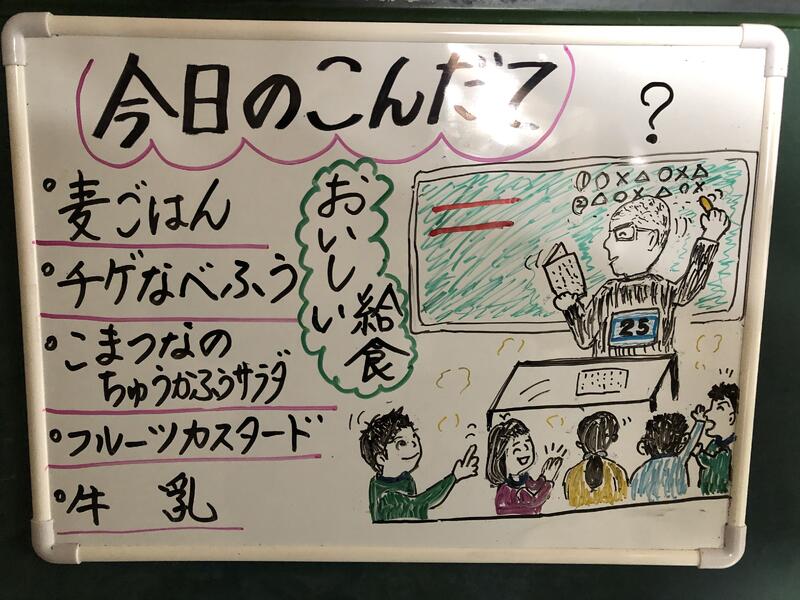 今日のこんだて
?
。麦ごはん
。チゲなべふう
。こまつなの
ちゅうかふうサラダ
。フルーツカスタード
。牛 乳
おいしい
給食
①○×△○×△
②△○×△○×
25